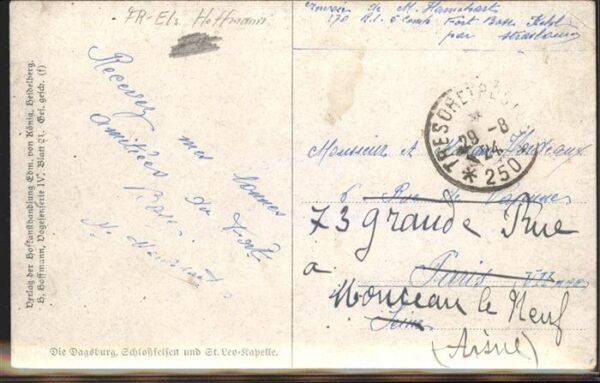 FR-Els. Hoffmann
Envoi de M.
170 R.I. 6e Comb Fort Bose Kehl
par Strasbourg
Recevez mes bonnes
amitiées du Fort
Bose
M.
TRESOR ET POSTES
29-8
24
* 250 *
Monsieur A
6 Rue de
73 grande Rue
Paris VIII
a Monceau le Neuf
Seine
(Aisne)
Verlag der Hofkunsthandlung Edm. von König, Heidelberg.
H. Hoffmann, Vogesenserie IV, Blatt 21. Ges. gesch. (f)
Die Dagsburg, Schloßfelsen und St. Leo-Kapelle.